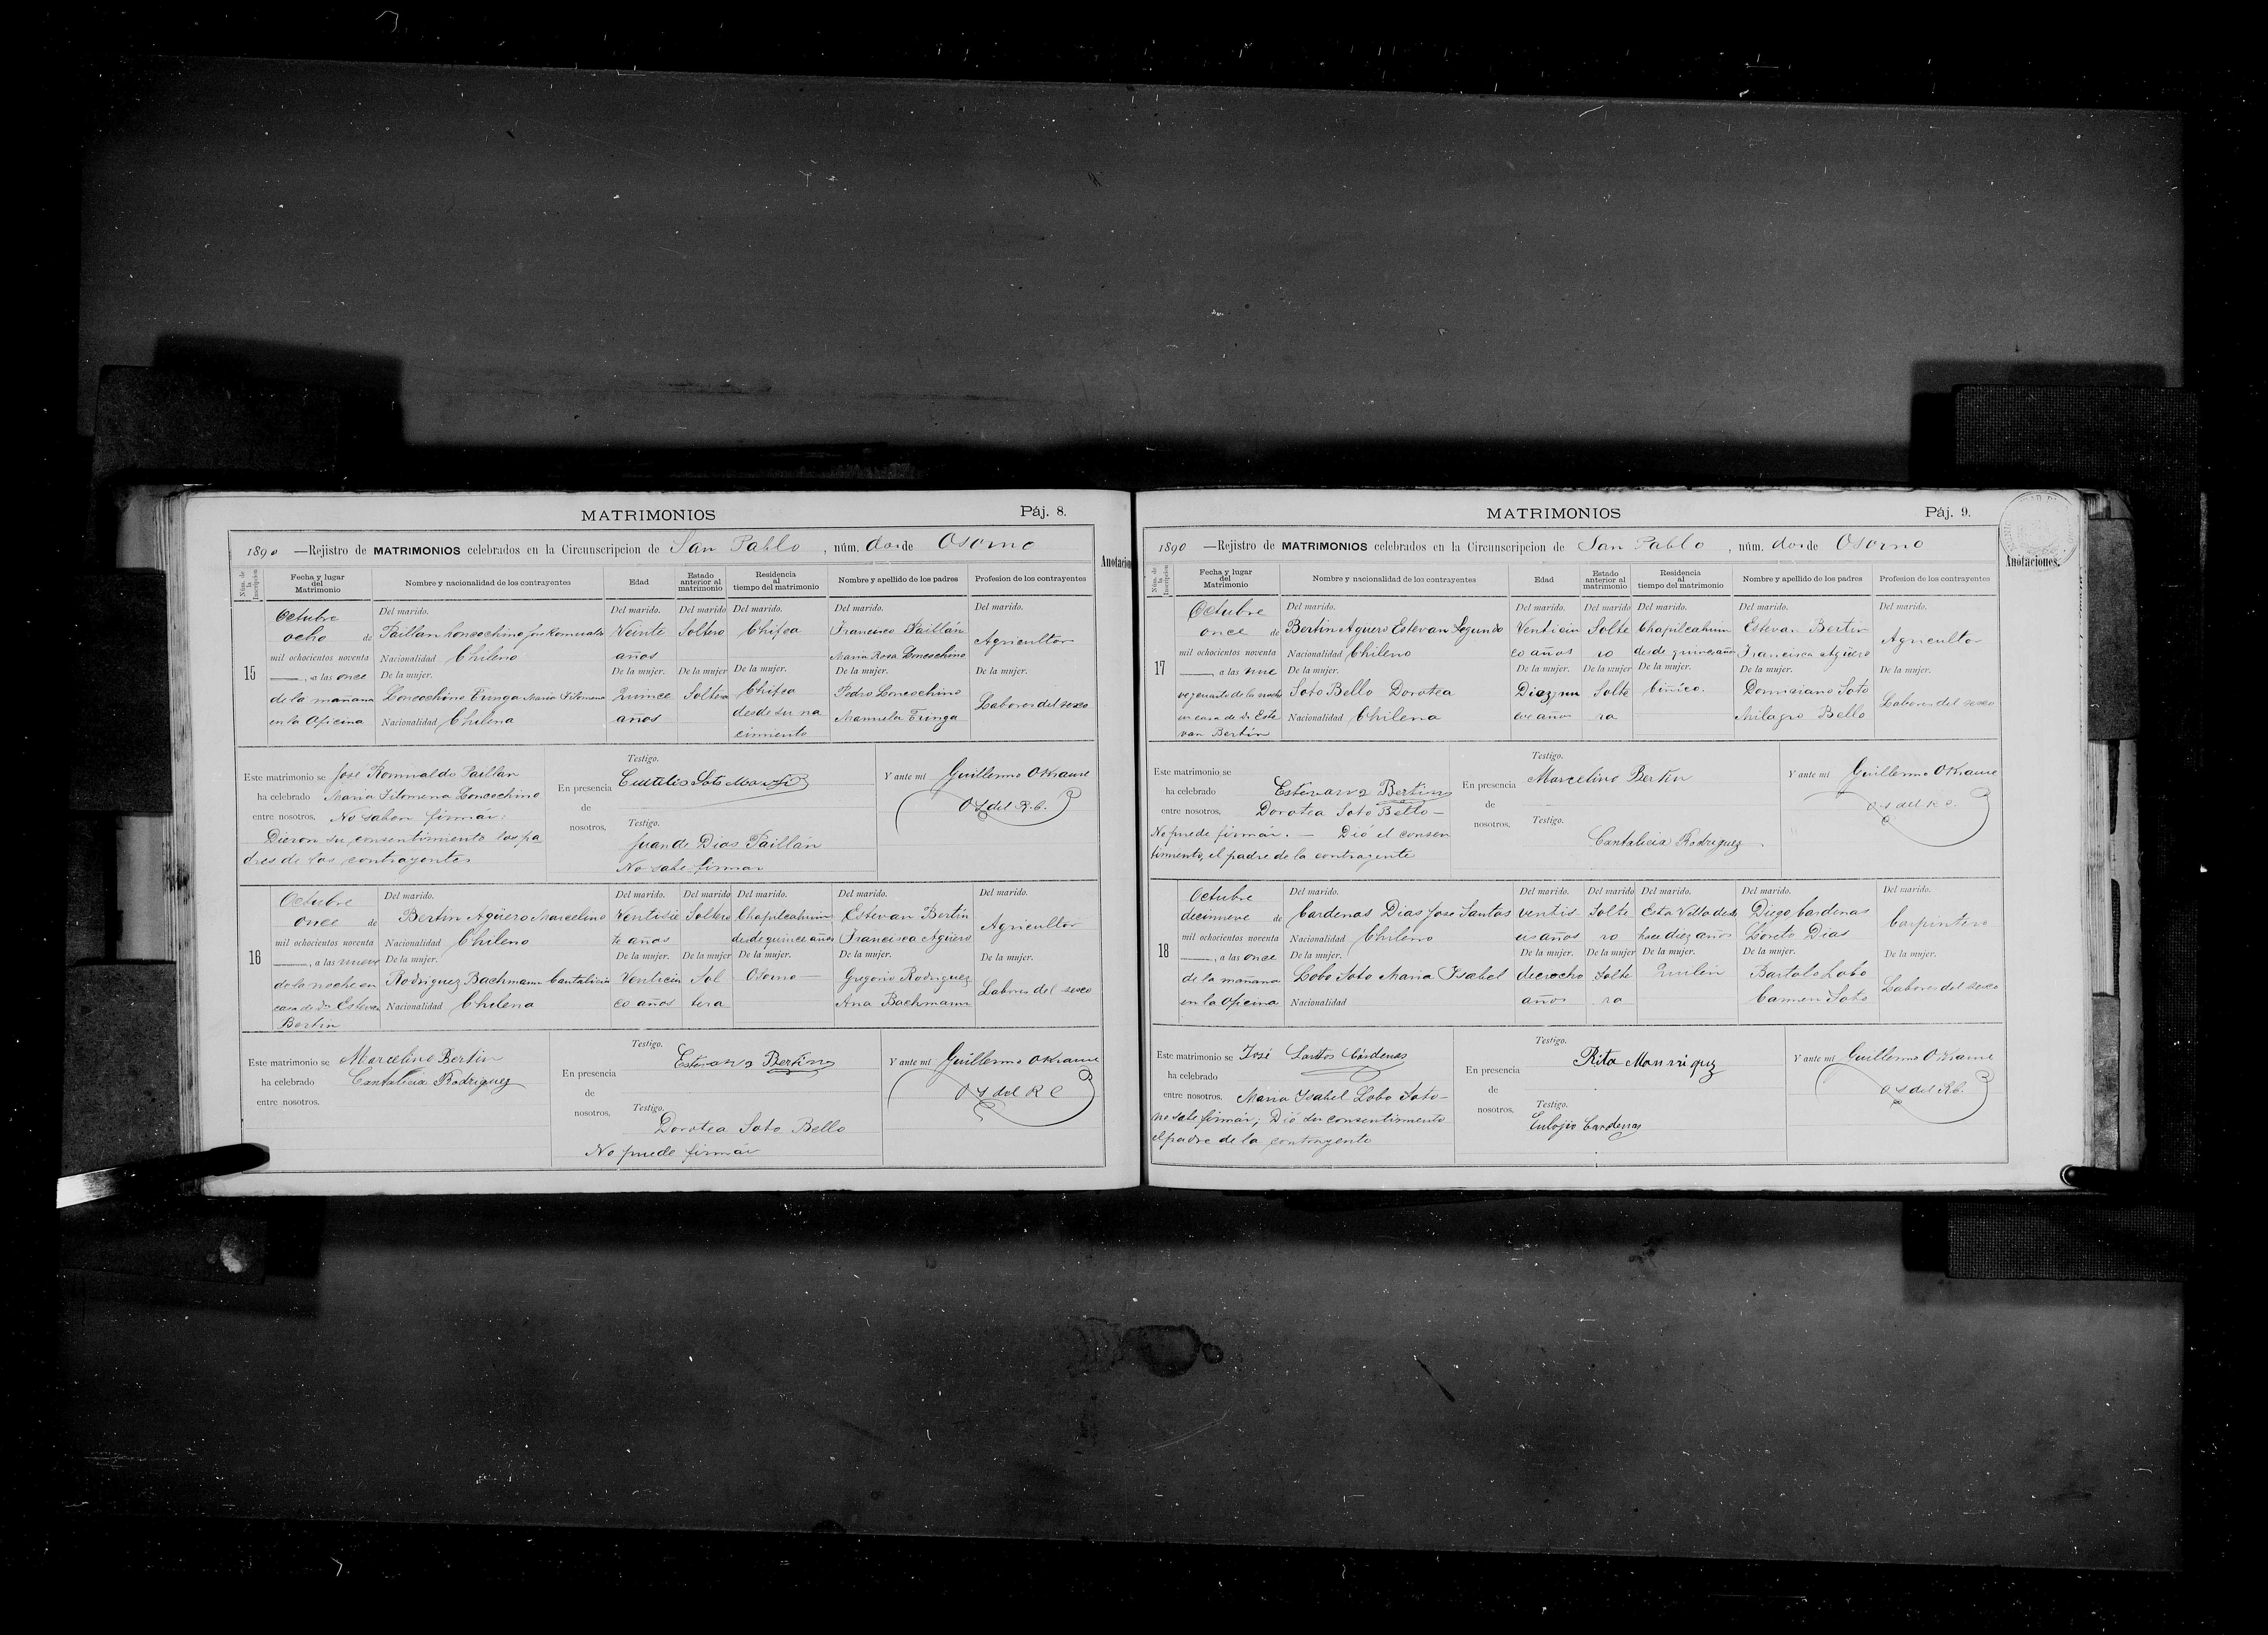 MATRIMONIOS
Páj. 8.
1890 —Rejistro de MATRIMONIOS celebrados en la Circunscripcion de San Pablo, núm. dos de Osorno
Anotacio
Núm. de la Inscripcion
Fecha y lugar del Matrimonio
Nombre y nacionalidad de los contrayentes
Edad
Estado anterior al matrimonio
Residencia al tiempo del matrimonio
Nombre y apellido de los padres
Profesion de los contrayentes
15
Octubre
ocho de
mil ochocientos noventa
, a las once
de la mañana
en la oficina
Del marido.
Paillan Loncochino José Romualdo
Nacionalidad Chileno
De la mujer.
Loncochino Tringa Maria Filomena
Nacionalidad Chilena
Del marido.
Veinte
años
De la mujer.
Quince
años
Del marido
Soltero
De la mujer
Soltera
Del marido.
Chifca
De la mujer.
Chifca
desde su na
cimiento
Del marido.
Francisco Paillán
Maria Rosa Loncochino
De la mujer.
Pedro Loncochino
Manuela Tringa
Del marido.
Agricultor
De la mujer.
Labores del sexo
Este matrimonio se José Romualdo Paillan
ha celebrado Maria Filomena Loncochino
entre nosotros. No saben firmar:
Dieron su consentimiento los pa
dres de los contrayentes
En presencia
de
nosotros,
Testigo.
Soto
Testigo.
Juan de Dios Paillán
No sabe firmar
Y ante mí Guillermo O Krause
O S del R. C.
16
Octubre
once de
mil ochocientos noventa
, a las nueve
de la noche en
casa de Dn Estevan
Bertin
Del marido.
Bertin Agüero Marcelino
Nacionalidad Chileno
De la mujer.
Rodriguez Bachmann Cantalicia
Nacionalidad Chilena
Del marido.
Ventisie
te años
De la mujer.
Venticin
co años
Del marido
Soltero
De la mujer
Sol
tera
Del marido.
Chapilcahuin
desde quince años
De la mujer.
Osorno
Del marido.
Estevan Bertin
Francisca Agüero
De la mujer.
Gregorio Rodriguez
Ana Bachmann
Del marido.
Agricultor
De la mujer.
Labores del sexo
Este matrimonio se Marcelino Bertin
ha celebrado Cantalicia Rodriguez
entre nosotros.
En presencia
de
nosotros,
Testigo.
Estevan 2 Bertin
Testigo.
Dorotea Soto Bello
No puede firmar
Y ante mí Guillermo O Krause
O S del R C
MATRIMONIOS
Páj. 9.
1890 —Rejistro de MATRIMONIOS celebrados en la Circunscripcion de San Pablo, núm. dos de Osorno
Anotaciones.
Núm. de la Inscripcion
Fecha y lugar del Matrimonio
Nombre y nacionalidad de los contrayentes
Edad
Estado anterior al matrimonio
Residencia al tiempo del matrimonio
Nombre y apellido de los padres
Profesion de los contrayentes
17
Octubre
once de
mil ochocientos noventa
, a las nue
ve y cuarto de la noche
en casa de Dn Este
van Bertin
Del marido.
Bertin Aguero Estevan Segundo
Nacionalidad Chileno
De la mujer.
Soto Bello Dorotea
Nacionalidad Chilena
Del marido.
Venticin
co años
De la mujer.
Diez y nu
eve años
Del marido
Solte
ro
De la mujer
Solte
ra
Del marido.
Chapilcahuin
desde quince años
De la mujer.
Del marido.
Estevan Bertin
Francisca Agüero
De la mujer.
Soto
Milagro Bello
Del marido.
Agricultor
De la mujer.
Labores del sexo
Este matrimonio se
ha celebrado Estevan 2 Bertin
entre nosotros. Dorotea Soto Bello —
No puede firmar. — Dió el consen
timiento, el padre de la contrayente
En presencia
de
nosotros,
Testigo.
Marcelino Bertin
Testigo.
Cantalicia Rodriguez
Y ante mí Guillermo O Krause
O S del R C.
18
Octubre
diecinueve de
mil ochocientos noventa
, a las once
de la mañana
en la oficina
Del marido.
Cardenas Dias Jose Santos
Nacionalidad Chileno
De la mujer.
Lobo Soto Maria Ysabel
Nacionalidad
Del marido.
ventis
eis años
De la mujer.
dieciocho
años
Del marido
Solte
ro
De la mujer
Solte
ra
Del marido.
Esta Villa desde
hace diez años
De la mujer.
Quilen
Del marido.
Diego Cardenas
Loreto Dias
De la mujer.
Bartolo Lobo
Carmen Soto
Del marido.
Carpintero
De la mujer.
Labores del sexo
Este matrimonio se José Santos Cárdenas
ha celebrado
entre nosotros. Maria Ysabel Lobo Soto —
no sabe firmar; Dió su consentimiento
el padre de la contrayente
En presencia
de
nosotros,
Testigo.
Rita Manriquez
Testigo.
Eulojio Cardenas
Y ante mí Guillermo O Krause
O S del R. C.